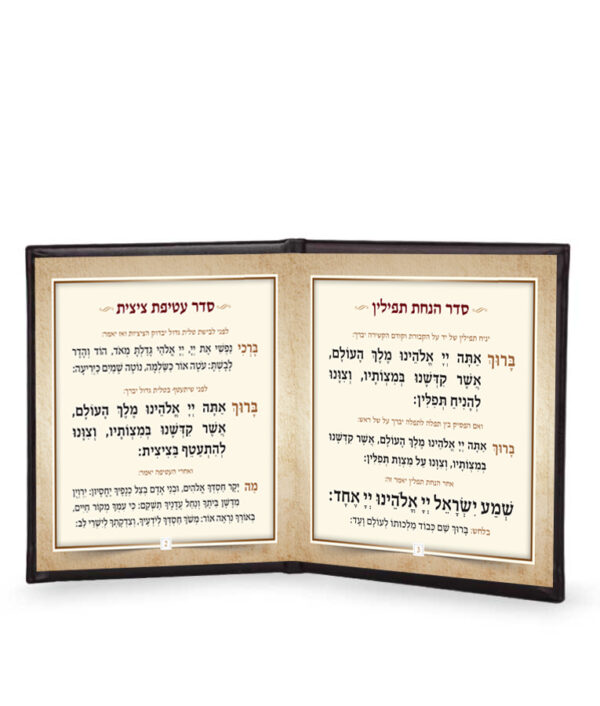 סדר עטיפת ציצית
לפני לבישת טלית גדול יבדוק הציציות ואז יאמר:
בָּרְכִי נַפְשִׁי אֶת יְיָ, יְיָ אֱלֹהַי גָּדַלְתָּ מְּאֹד, הוֹד וְהָדָר
לָבָשְׁתָּ: עֹטֶה אוֹר כַּשַּׂלְמָה, נוֹטֶה שָׁמַיִם כַּיְרִיעָה:
לפני שיתעטף בטלית גדול יברך:
בָּרוּךְ אַתָּה יְיָ אֱלֹהֵינוּ מֶלֶךְ הָעוֹלָם,
אֲשֶׁר קִדְּשָׁנוּ בְּמִצְוֹתָיו, וְצִוָּנוּ
לְהִתְעַטֵּף בַּצִּיצִית:
ואחרי העטיפה יאמר:
מַה יָּקָר חַסְדְּךָ אֱלֹהִים, וּבְנֵי אָדָם בְּצֵל כְּנָפֶיךָ יֶחֱסָיוּן: יִרְוְיֻן
מִדֶּשֶׁן בֵּיתֶךָ וְנַחַל עֲדָנֶיךָ תַשְׁקֵם: כִּי עִמְּךָ מְקוֹר חַיִּים,
בְּאוֹרְךָ נִרְאֶה אוֹר: מְשֹׁךְ חַסְדְּךָ לְיֹדְעֶיךָ, וְצִדְקָתְךָ לְיִשְׁרֵי לֵב:
2
סדר הנחת תפילין
יניח תפילין של יד על הקבורת וקודם הקשירה יברך:
בָּרוּךְ אַתָּה יְיָ אֱלֹהֵינוּ מֶלֶךְ הָעוֹלָם,
אֲשֶׁר קִדְּשָׁנוּ בְּמִצְוֹתָיו, וְצִוָּנוּ
לְהָנִיחַ תְּפִלִּין:
ואם הפסיק בין תפלה לתפלה יברך על של ראש:
בָּרוּךְ אַתָּה יְיָ אֱלֹהֵינוּ מֶלֶךְ הָעוֹלָם, אֲשֶׁר קִדְּשָׁנוּ
בְּמִצְוֹתָיו, וְצִוָּנוּ עַל מִצְוַת תְּפִלִּין:
אחר הנחת תפלין יאמר זה:
שְׁמַע יִשְׂרָאֵל יְיָ אֱלֹהֵינוּ יְיָ אֶחָד:
בלחש: בָּרוּךְ שֵׁם כְּבוֹד מַלְכוּתוֹ לְעוֹלָם וָעֶד:
3